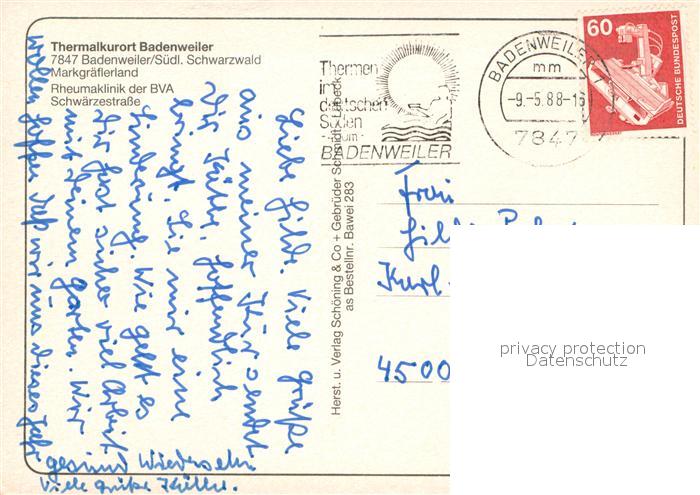 Thermalkurort Badenweiler
7847 Badenweiler/Südl. Schwarzwald
Markgräflerland
Rheumaklinik der BVA
Schwärzestraße
Liebe Hilde. Viele Grüße
aus meiner Kur sendet
Dir Käthe. Hoffentlich
bringt Sie mir eine
Linderung. Wie geht es
Dir hast sicher viel Arbeit
mit Deinem Garten. Wir
wollen hoffen daß wir uns dieses Jahr
gesund Wiedersehn
Viele Grüße Käthe.
Herst. u. Verlag Schöning & Co + Gebrüder Schmidt, Lübeck
als Bestellnr. Bawei 283
Thermen
im
deutschen
Süden
BADENWEILER
BADENWEILER
mm
-9.-5.88-16
7847
60
DEUTSCHE BUNDESPOST
Frau
Karl
4500
privacy protection
Datenschutz